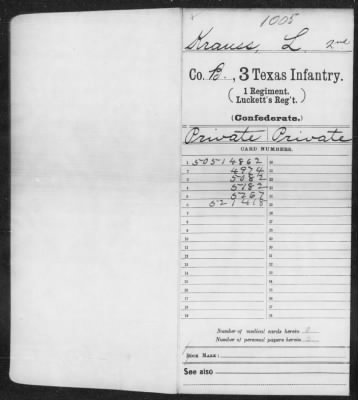 1005
Krauss, L. 2nd
Co. B., 3 Texas Infantry.
( 1 Regiment.
Luckett's Reg't. )
(Confederate.)
Private Private
CARD NUMBERS.
1 50514862 20
2 4974 21
3 5082 22
4 5182 23
5 5267 24
6 521418 25
7 26
8 27
9 28
10 29
11 30
12 31
13 32
14 33
15 34
16 35
17 36
18 37
19 38
Number of medical cards herein 0
Number of personal papers herein
BOOK MARK:
See also